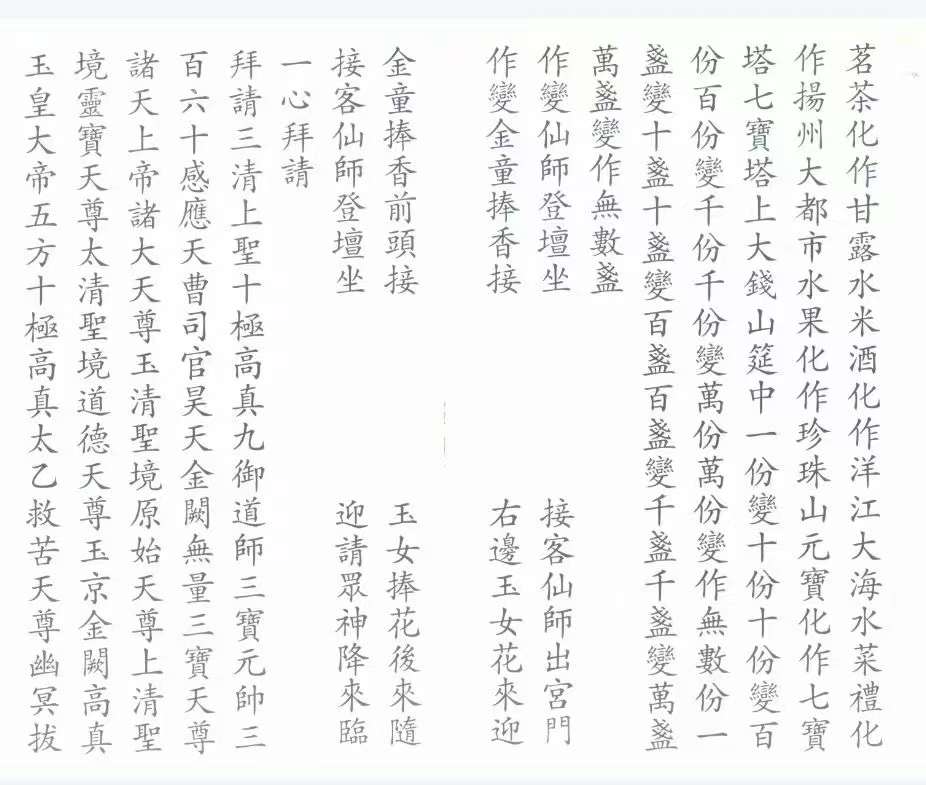 茗茶化作甘露水米酒化作洋江大海水菜禮化
作揚州大都市水果化作珍珠山元寶化作七寶
塔七寶塔上大錢山筵中一份變十份十份變百
份百份變千份千份變萬份萬份變作無數份一
盞變十盞十盞變百盞百盞變千盞千盞變萬盞
萬盞變作無數盞
作變仙師登壇坐　接客仙師出宮門
作變金童捧香接　右邊玉女花來迎
金童捧香前頭接　玉女捧花後來隨
接客仙師登壇坐　迎請眾神降來臨
一心拜請
拜請三清上聖十極高真九御道師三寶元帥三
百六十感應天曹司官昊天金闕無量三寶天尊
諸天上帝諸大天尊玉清聖境原始天尊上清聖
境靈寶天尊太清聖境道德天尊玉京金闕高真
玉皇大帝五方十極高真太乙救苦天尊幽冥拔